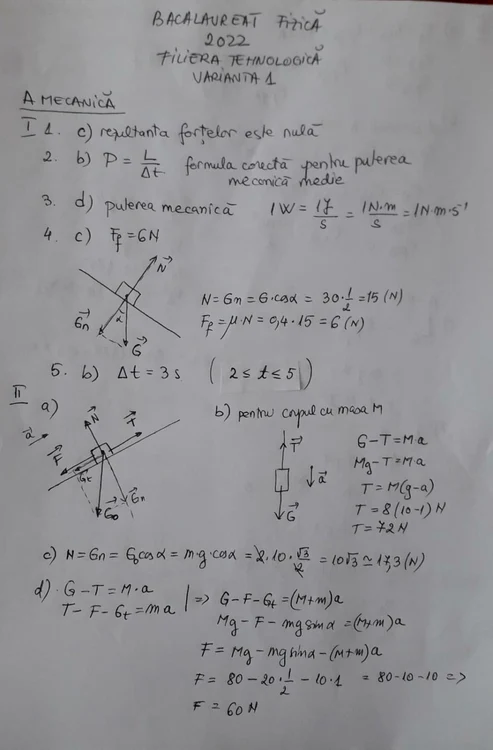 BACALAUREAT FIZICĂ
2022
FILIERA TEHNOLOGICĂ
VARIANTA 1
A MECANICĂ
I 1. c) rezultanta forțelor este nulă
2. b) P = L/Δt formula corectă pentru puterea
mecanică medie
3. d) puterea mecanică 1W = 1J/s = 1N·m/s = 1N·m·s⁻¹
4. c) Ff = 6N
N⃗
G⃗n
α
G⃗
N = Gn = G·cosα = 30·1/2 = 15 (N)
Ff = μ·N = 0,4·15 = 6 (N)
5. b) Δt = 3s ( 2 ≤ t ≤ 5 )
II a)
a⃗
N⃗
T⃗
F⃗
G⃗t
G⃗n
G⃗0
b) pentru corpul cu masa M
T⃗
a⃗
G⃗
G-T=Ma
Mg-T=M·a
T=M(g-a)
T=8(10-1)N
T=72N
c) N=Gn=G0cosα=m·g·cosα=2·10·√3/2=10√3≃17,3(N)
d) G-T=M·a
T-F-Gt=ma
=> G-F-Gt=(M+m)a
Mg-F-mgsinα=(M+m)a
F=Mg-mgsinα-(M+m)a
F=80-20·1/2-10·1 = 80-10-10 =>
F=60N